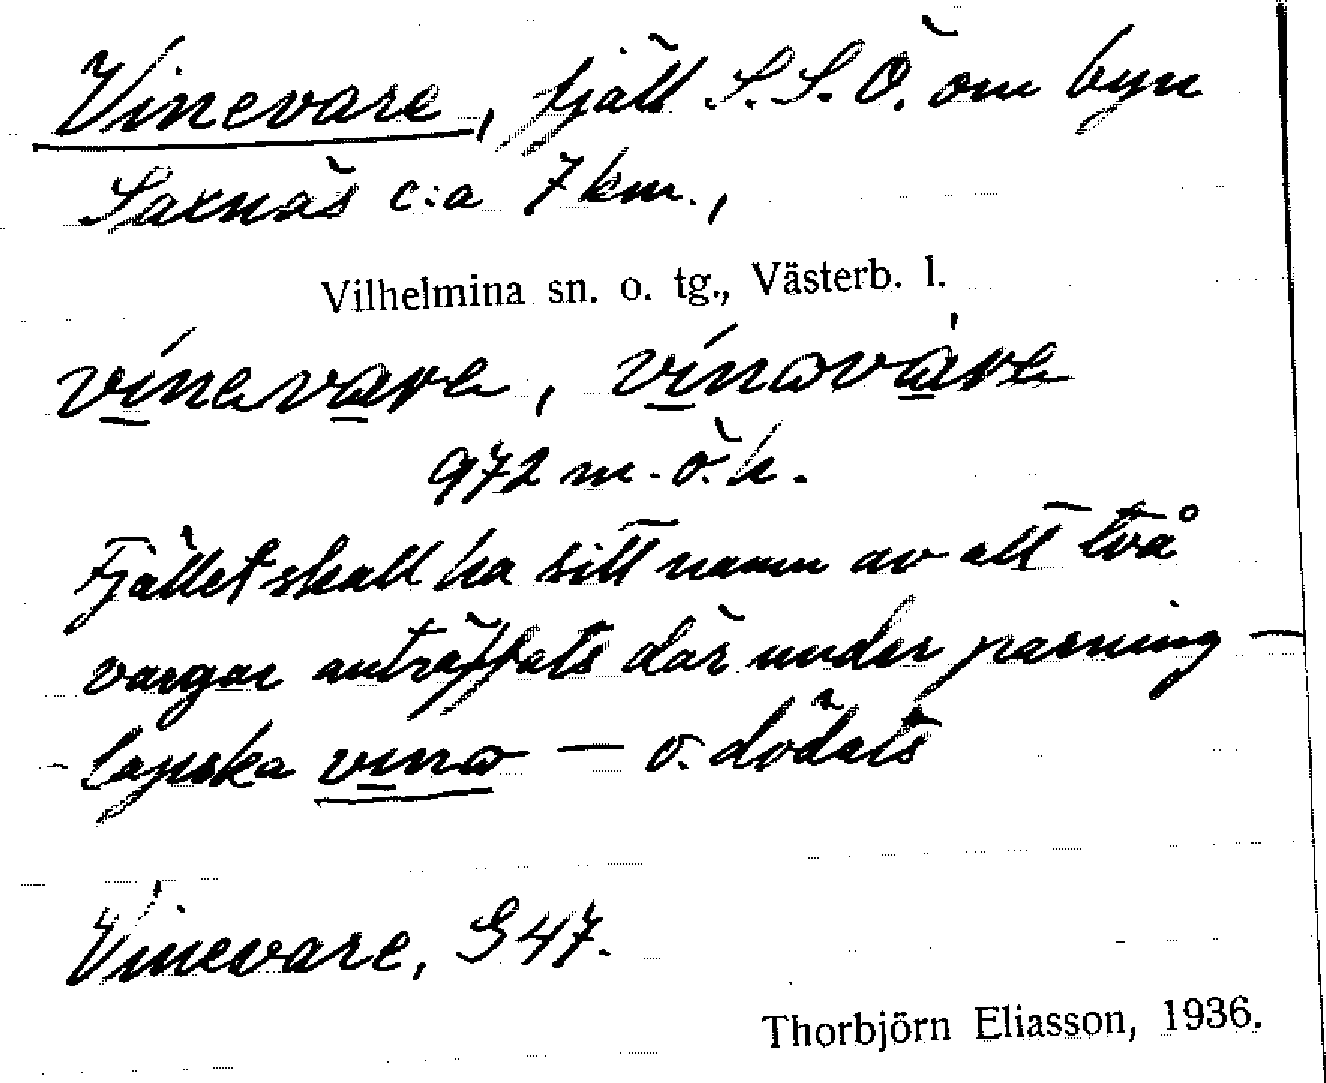 Vinevare, fjäll S.S.Ö. om byn
Saxnäs c:a 7 km.,
Vilhelmina sn. o. tg., Västerb. l.
vínevare, vínavàre
972 m.ö.h.
Fjället skall ha sitt namn av att två
vargar anträffats där under parning —
lapska vina — o. dödats
Vinevare, G 47.
Thorbjörn Eliasson, 1936.